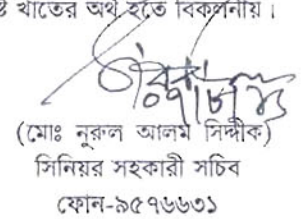 খাতের অর্থ হতে বিকলনীয়।
(মোঃ নূরুল আলম সিদ্দীক)
সিনিয়র সহকারী সচিব
ফোন-৯৫৭৬৬৩১